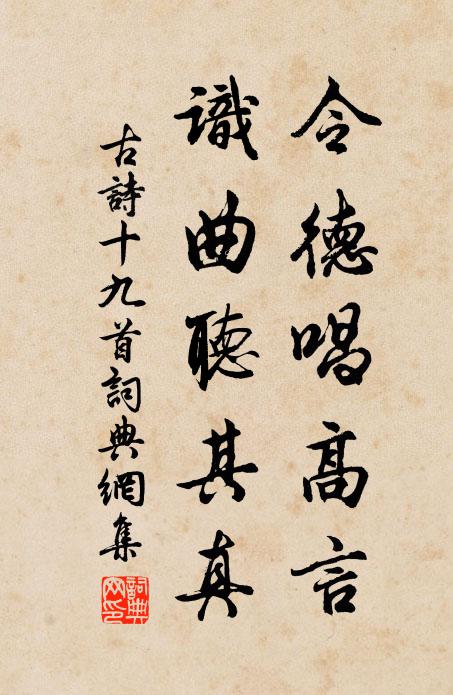 令德唱高言
識曲聽其真
古詩十九首詞典網集
詞典
网印